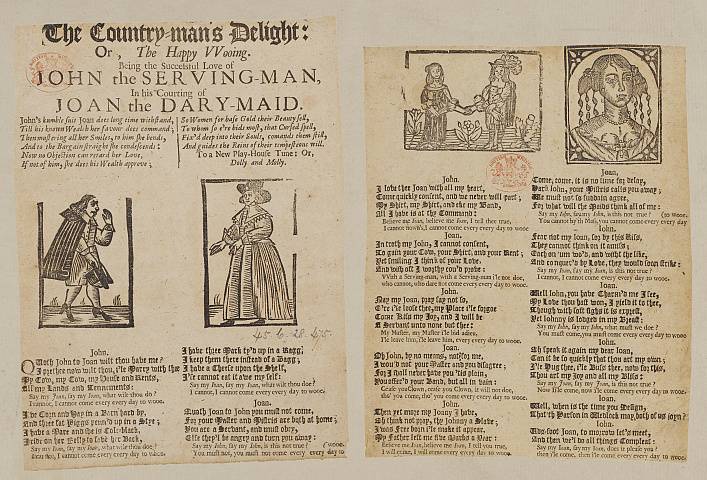 The Country-man's Delight:
Or, The Happy VVooing.
Being the Succesful Love of
JOHN the SERVING-MAN,
In his Courting of
JOAN the DARY-MAID.
John's humble suit Joan does long time withstand,
Till his known Wealth her favour does command;
Then must'ring all her Smiles, to him she bends,
And to the Bargain straight she condescends:
Now no Objection can retard her Love,
If not of him, she does his Wealth approve;
So Women for base Gold their Beauty sell,
To whom so e're bids most, that Cursed spell,
Fix'd deep into their Souls, comands them still,
And guides the Reins of their tempestuous will.
To a New Play-House Tune: Or,
Dolly and Molly.
John.
Quoth John to Joan wilt thou have me?
I prethee now wilt thou, i'le Marry with thee
My Cow, my Cow, my House and Rents,
All my Lands and Tenements:
Say my Joan, say my Joan, what wilt thou do?
I cannot, I cannot come every every day to wooe.
I've Corn and Hay in a Barn hard by,
And three fat Hoggs pen'd up in a Stye;
I have a Mare and she is Cole-black,
I ride on her Belly to save her Back,
Say my Joan, say my Joan, what wilt thou doe?
I cannot come every every day to wooe.
I have three Mark ty'd up in a Ragg;
I keep them there instead of a Bagg;
I have a Cheese upon the Shelf,
I've cannot eat it alwe my self:
Say my Joan, say my Joan, what wilt thou doe?
I cannot, I cannot come every every day to wooe.
Joan.
Quoth Joan to John you must not come,
For your Master and Mistris are both at home;
You are a Servant, and must obey,
Else they'l be angry and turn you away:
Say my John, say my John, is this not true?
You must not, you must not come every every day to (wooe.
John.
I love thee Joan with all my heart,
Come quickly consent, and we never will part;
My Shirt, my Shirt, and eke my Band,
All I have is at thy Command:
Believe me Joan, believe me Joan, I tell thee true,
I cannot come every every day to wooe.
Joan.
In troth my John, I cannot consent,
To gain your Cow, your Shirt, and your Rent;
Yet smiling I think of your Love,
And wish of I worthy cou'd prove:
With a Serving-man, with a Serving-man i'le not doe,
who cannot, who dare not come every every day to wooe.
John.
Nay my Joan, pray say not so,
E're i'le loose thee, my Place i'le forgoe
Come Kiss my Joy, and I will be
A Servant unto none but thee:
My Master, my Master i'le bid adieu,
I'le leave him, i'le leave him, every every day to wooe.
Joan.
Oh John, by no means, not for me,
I wou'd not your Master and you disagree;
For I shall never have you 'tis plain,
You offer'd your Band, but all in vain:
Cease you Clown, cease you Clown, it will not doe,
tho' you come, tho' you come every every day to wooe.
John.
Then yet more my Honey I have,
Oh think not pray, thy Johnny a Slave;
I was Free born i'le make it appear,
My Father left me five Marks a Year:
Believe me Joan, believe me Joan, I tell you true,
I will come, I will come every every day to wooe.
Joan.
Come, come, it is no time for delay,
Hark John, your Mistris calls you away;
We must not so suddain agree,
For what will the Maids think all of me:
Say my John, say my John, is this not true? (to wooe.
You cannot by th' Mass, you cannot come every every day
John.
Fear not my Joan, for by this Kiss,
They cannot think on it amiss;
Say my Joan, say my Joan, is this not true?
I cannot, I cannot come every every day to wooe.
Joan.
Well John, you have Charm'd me I see,
My Love thou hast won, I yield it to thee,
Though with soft sighs it is exprest,
Yet Johnny is lodged in my Breast:
Say my John, say my John, what must we doe?
You must come, you must come every every day to wooe.
John.
Oh speak it again my dear Joan,
Can it be so quickly that thou art my own;
I'le Hug thee, i'le Buss thee, now for this,
Thou art my Joy and all my Bliss:
Say my Joan, say my Joan, is this not true?
I cannot, I cannot come every every day to wooe.
Joan.
Well, when is the time you Design,
That th' Parson in Wedlock may both of us joyn?
John.
Uds-foot Joan, to morrow let's meet,
And then we'l do all things Compleat:
Say my Joan, say my Joan, does it please you?
then i'le come, then i'le come every every day to wooe.